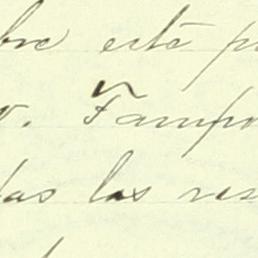 bre esté p
. Tampo
das las res